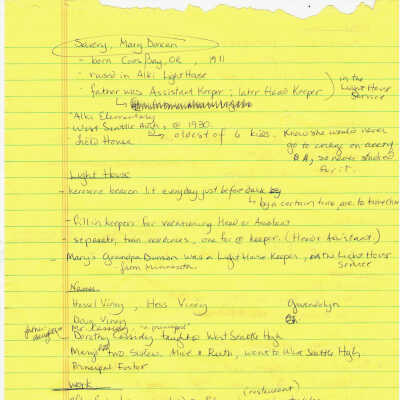 Savery, Mary Duncan
- born Coos Bay, OR, 1911
- raised in Alki Light House
- father was Assistant Keeper; later Head Keeper) in the Light House Service
- Alki Elementary
- West Seattle High, @ 1930.
oldest of 6 kids. Know she would never go to college on
so never studied for it.
Light House
- kerosene beacon lit everyday just before dark
by a certain time
- Fill in keepers for vacationing Head or Assistant
- separate, twin residences, one for @ keeper. (Head & Assistant)
- Mary's Grandpa Duncan was a Light House Keeper, Light House Service
from Minnesota
Names
Hessel Viney, Hess Viney Gwendolyn
Doug Viney
Mr. Kassidy
Dorothy Cassidy, taught @ West Seattle High
Mary's two sisters, Alice & Ruth, went to West Seattle High
Principal Foster
Work
(restaurant)